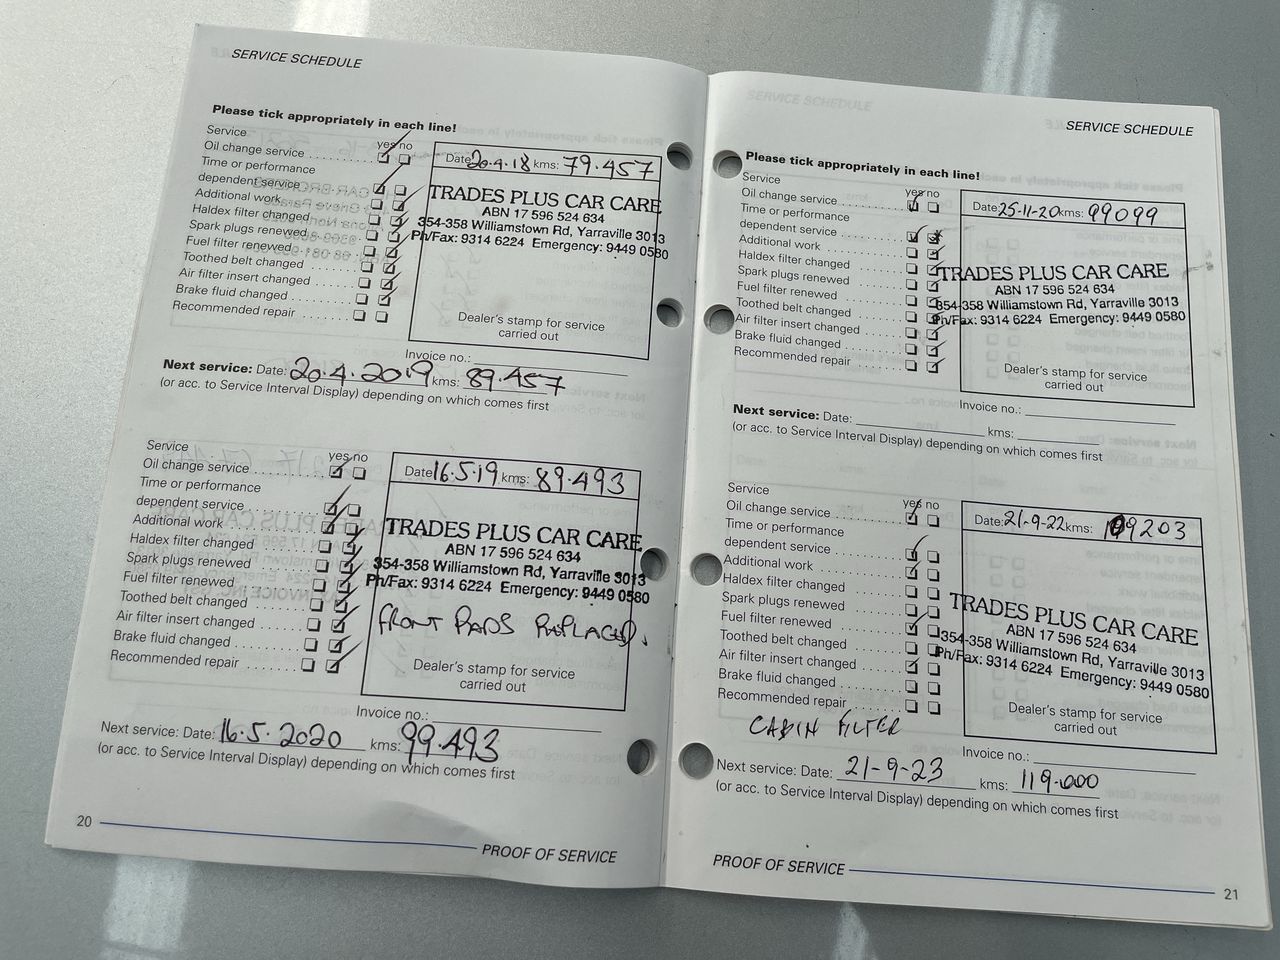 SERVICE SCHEDULE
Please tick appropriately in each line!
Service
yes no
Oil change service
Time or performance
dependent service
Additional work
Haldex filter changed
Spark plugs renewed
Fuel filter renewed
Toothed belt changed
Air filter insert changed
Brake fluid changed
Recommended repair
Date 20.4.18 kms: 79.457
TRADES PLUS CAR CARE
ABN 17 596 524 634
354-358 Williamstown Rd, Yarraville 3013
Ph/Fax: 9314 6224 Emergency: 9449 0580
Dealer's stamp for service
carried out
Invoice no.:
Next service: Date: 20.4.2019 kms: 89.457
(or acc. to Service Interval Display) depending on which comes first
Service
yes no
Oil change service
Time or performance
dependent service
Additional work
Haldex filter changed
Spark plugs renewed
Fuel filter renewed
Toothed belt changed
Air filter insert changed
Brake fluid changed
Recommended repair
Date 16.5.19 kms: 89.493
TRADES PLUS CAR CARE
ABN 17 596 524 634
354-358 Williamstown Rd, Yarraville 3013
Ph/Fax: 9314 6224 Emergency: 9449 0580
FRONT PADS REPLACED.
Dealer's stamp for service
carried out
Invoice no.:
Next service: Date: 16.5.2020 kms: 99.493
(or acc. to Service Interval Display) depending on which comes first
20
PROOF OF SERVICE
SERVICE SCHEDULE
Please tick appropriately in each line!
Service
yes no
Oil change service
Time or performance
dependent service
Additional work
Haldex filter changed
Spark plugs renewed
Fuel filter renewed
Toothed belt changed
Air filter insert changed
Brake fluid changed
Recommended repair
Date: 25-11-20 kms: 99099
TRADES PLUS CAR CARE
ABN 17 596 524 634
354-358 Williamstown Rd, Yarraville 3013
Ph/Fax: 9314 6224 Emergency: 9449 0580
Dealer's stamp for service
carried out
Invoice no.:
Next service: Date: kms:
(or acc. to Service Interval Display) depending on which comes first
Service
yes no
Oil change service
Time or performance
dependent service
Additional work
Haldex filter changed
Spark plugs renewed
Fuel filter renewed
Toothed belt changed
Air filter insert changed
Brake fluid changed
Recommended repair
CABIN FILTER
Date: 21-9-22 kms: 109203
TRADES PLUS CAR CARE
ABN 17 596 524 634
354-358 Williamstown Rd, Yarraville 3013
Ph/Fax: 9314 6224 Emergency: 9449 0580
Dealer's stamp for service
carried out
Invoice no.:
Next service: Date: 21-9-23 kms: 119.000
(or acc. to Service Interval Display) depending on which comes first
PROOF OF SERVICE
21